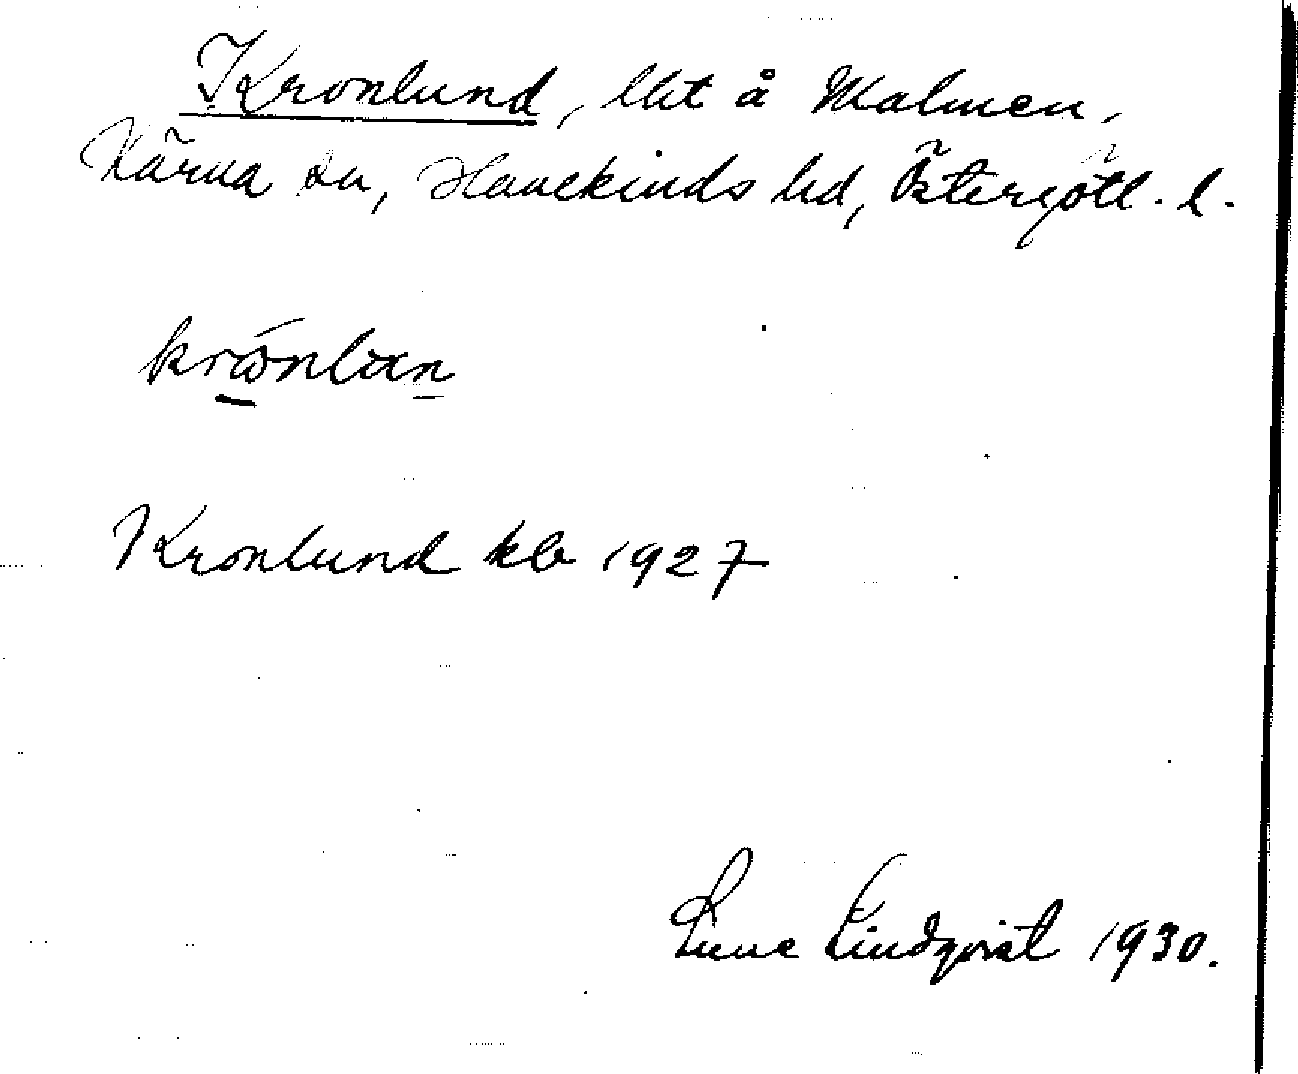 Kronlund, lht å Malmen,
Kärna sn, Hanekinds hd, Östergötl. l.
Kronlund kb 1927
Sune Lindqvist 1930.